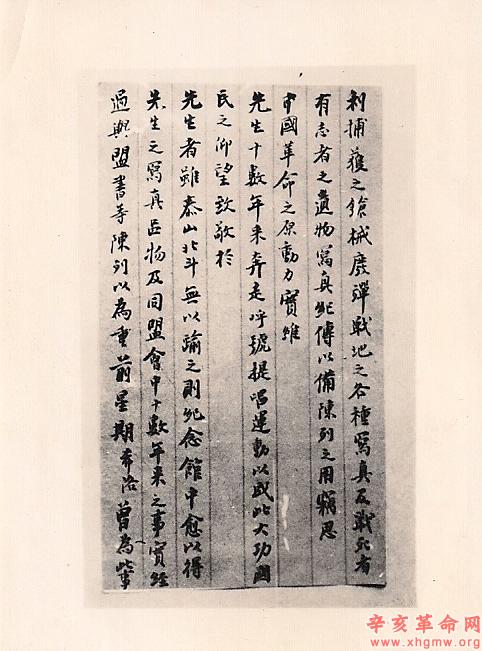 利捕獲之鎗械廢彈戰地之各種寫真及戰死者
有志者之遺物寫真死傳以備陳列之用竊思
中國革命之原動力實維
先生十數年来奔走呼號提唱運動以成此大功國
民之仰望致敬於
先生者雖泰山北斗無以踰之則紀念館中愈以得
先生之寫真品物及同盟會中十數年来之事實經
過與盟書等陳列以為重前星期奔洛曾為此事
辛亥革命网
www.xhgmw.org